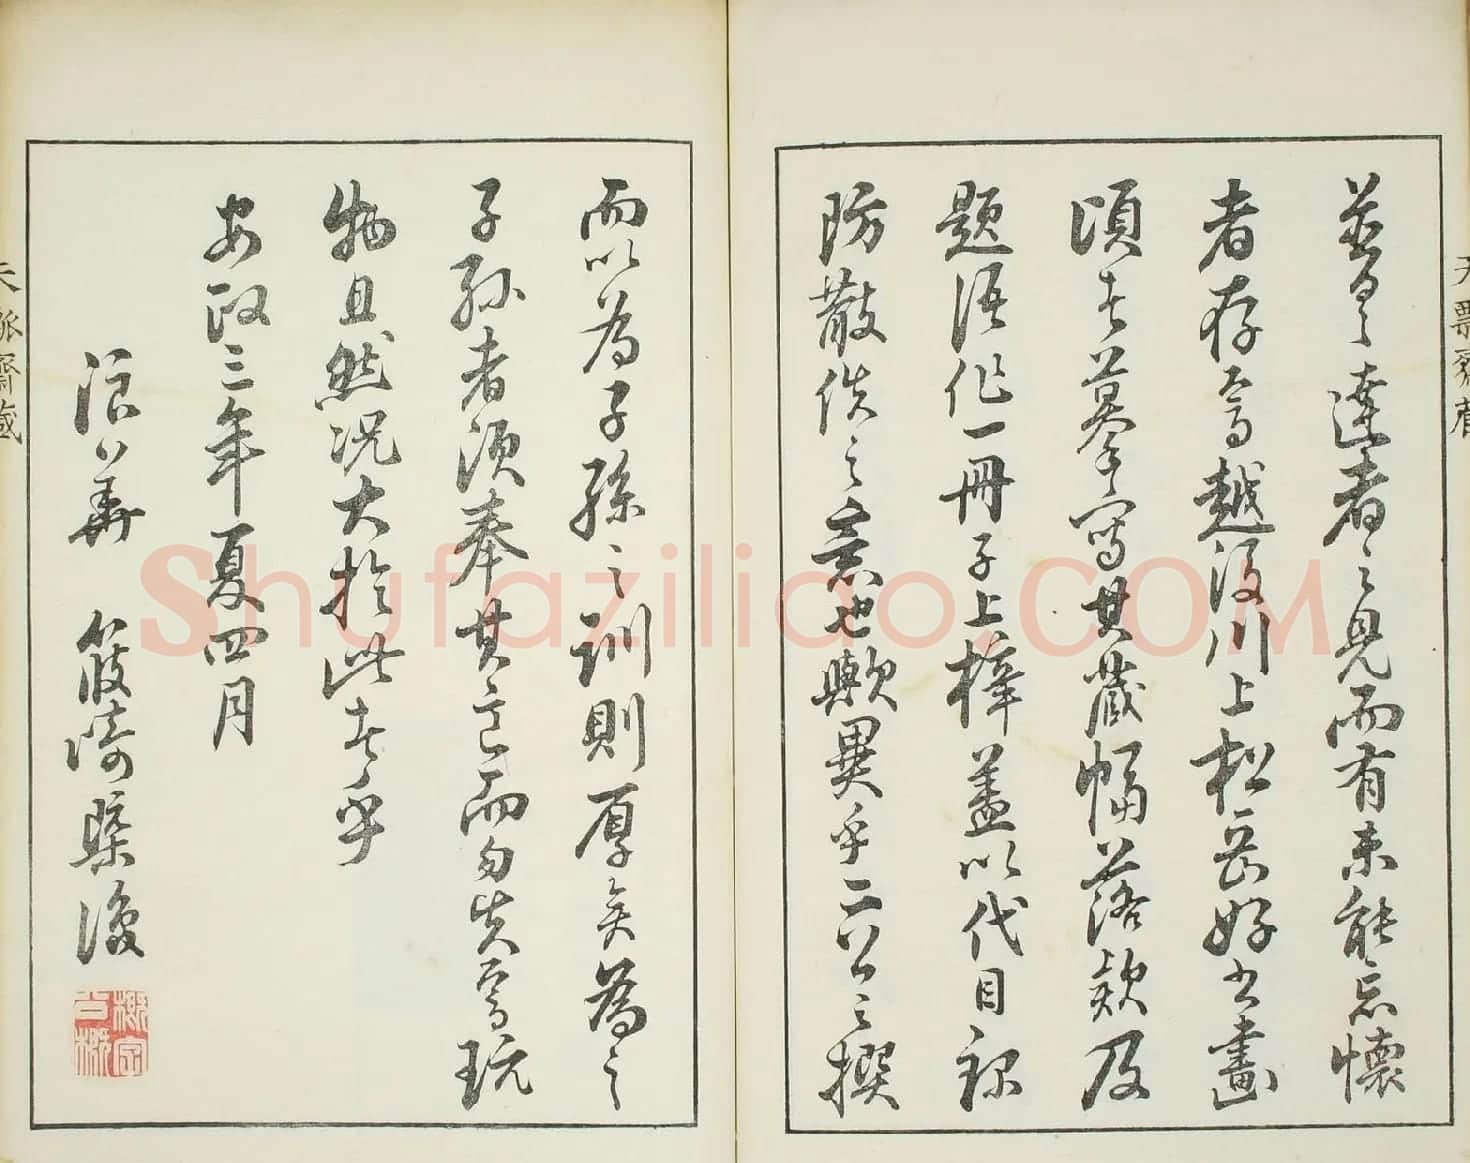 達者之見而有未能忘懷
者存焉越後川上松岳好書畫
頃者摹寫其藏幅落款及
題語作一冊子上梓蓋以代目録
防散佚之意也歟異乎二公之撰
而以為子孫之訓則厚矣為之
子孫者須奉其意而勿失焉玩
物且然況大於此者乎
安政三年夏四月
浪華 筱崎槩
概字公概
Shufaziliao.COM